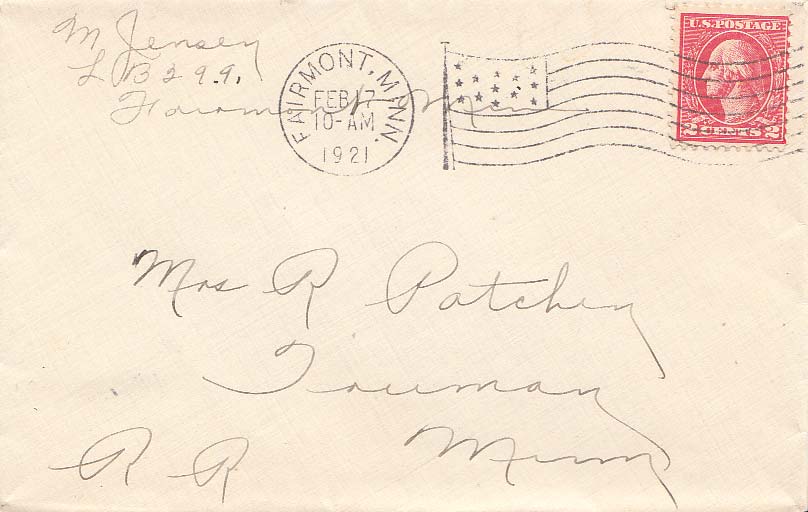 M Jensen
L B 299.
Fairmont Minn
FAIRMONT, MINN.
FEB 17
10-AM
1921
U.S. POSTAGE
2 CENTS 2
Mrs R Patchen
Truman
R R Minn